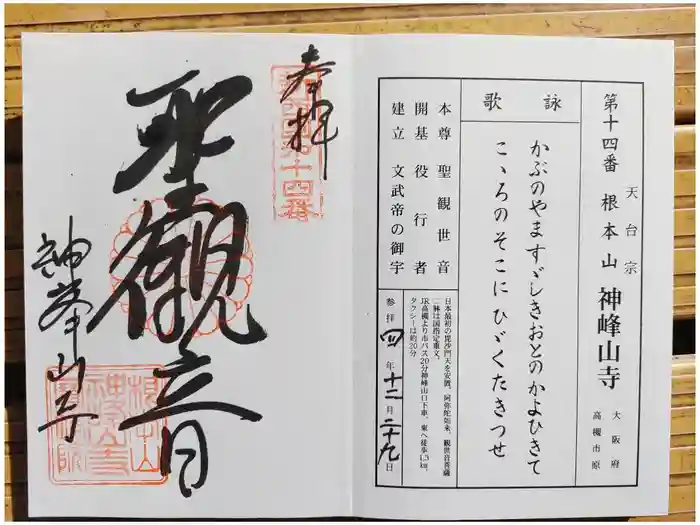 第十四番 天台宗 根本山 神峰山寺 大阪府高槻市原
詠歌
かぶのやますゞしきおとのかよひきて
こゝろのそこにひゞくたきつせ
本尊 聖観世音
開基 役行者
建立 文武帝の御宇
日本最初の毘沙門天を安置。阿弥陀如来、観世音菩薩
二躰は国指定重文。
JR高槻より市バス20分神峰山口下車、東へ徒歩1.3km。
タクシーは約20分
参拝 四年十二月二十九日
奉拝
第十四番
聖観音
神峯山寺